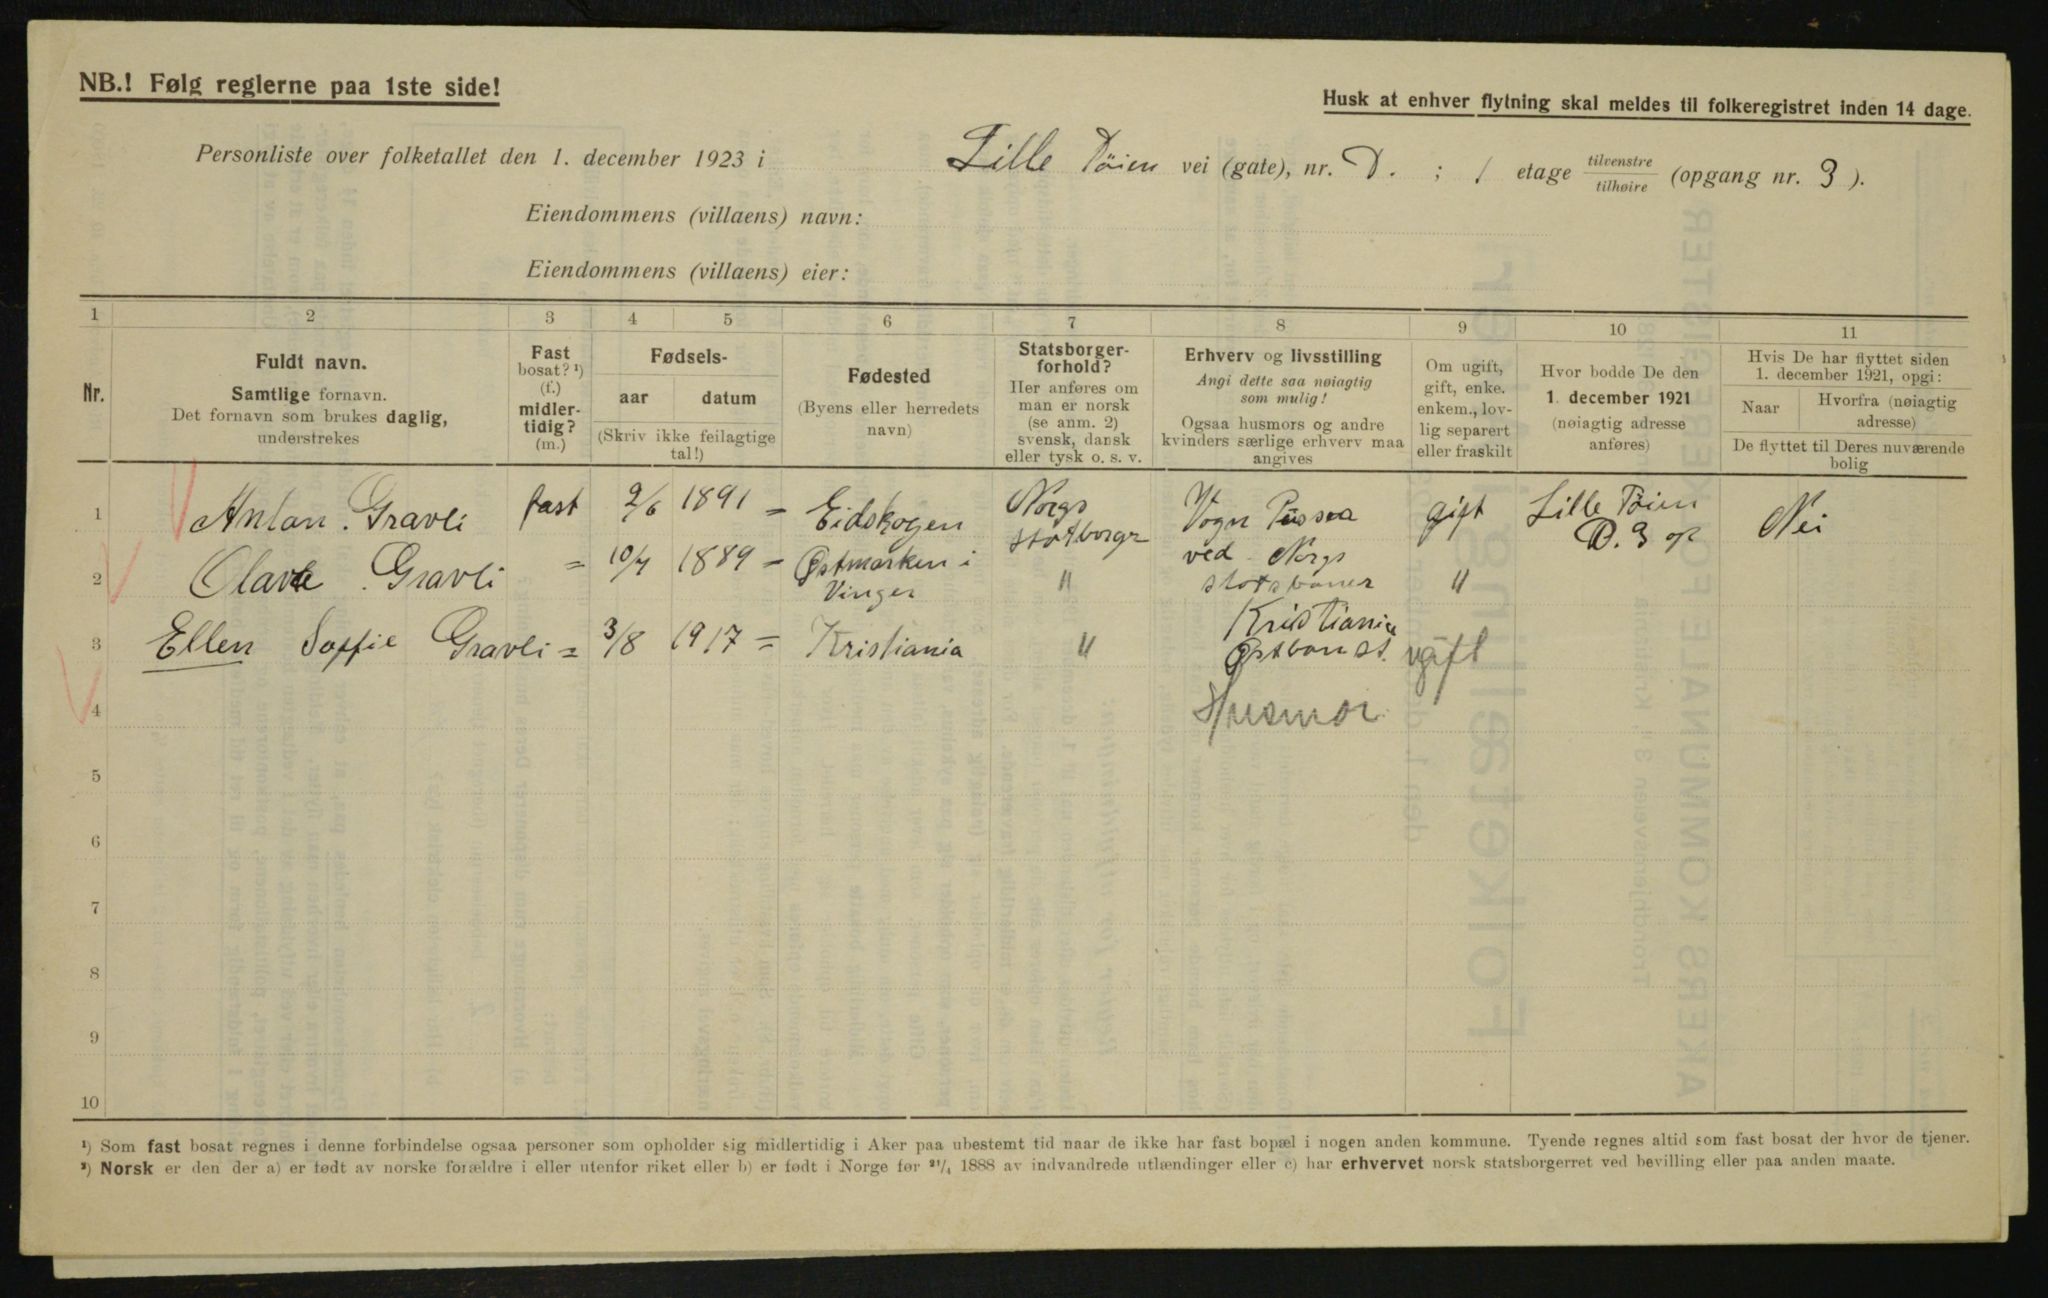 NB.! Følg reglerne paa 1ste side!
Husk at enhver flytning skal meldes til folkeregistret inden 14 dage.
Personliste over folketallet den 1. december 1923 i Lille Tøien vei (gate), nr. D. ; 1 etage tilvenstre / tilhøire (opgang nr. 3 ).
Eiendommens (villaens) navn:
Eiendommens (villaens) eier:
1 2 3 4 5 6 7 8 9 10 11
Nr.
Fuldt navn.
Samtlige fornavn.
Det fornavn som brukes daglig,
understrekes
Fast
bosat? ¹)
(f.)
midler-
tidig?
(m.)
Fødsels-
aar datum
(Skriv ikke feilagtige
tal!)
Fødested
(Byens eller herredets
navn)
Statsborger-
forhold?
Her anføres om
man er norsk
(se anm. 2)
svensk, dansk
eller tysk o. s. v.
Erhverv og livsstilling
Angi dette saa nøiagtig
som mulig!
Ogsaa husmors og andre
kvinders særlige erhverv maa
angives
Om ugift,
gift, enke.
enkem., lov-
lig separert
eller fraskilt
Hvor bodde De den
1. december 1921
(nøiagtig adresse
anføres)
Hvis De har flyttet siden
1. december 1921, opgi:
Naar
Hvorfra (nøiagtig
adresse)
De flyttet til Deres nuværende
bolig
1 Anton Gravli fast 2/6 1891 = Eidskogen Norgs statborgr Vogn Pussa gift Lille Tøien D. 3 op Nei
ved Norgs
2 Olava Gravli = 10/7 1889 = Østmarken i Vinger " statsbaner "
Kristiania
3 Ellen Soffie Gravli = 3/8 1917 = Kristiania " Østbanst. ugift
4 Husmor
5
6
7
8
9
10
¹) Som fast bosat regnes i denne forbindelse ogsaa personer som opholder sig midlertidig i Aker paa ubestemt tid naar de ikke har fast bopæl i nogen anden kommune. Tyende regnes altid som fast bosat der hvor de tjener.
²) Norsk er den der a) er født av norske forældre i eller utenfor riket eller b) er født i Norge før ²¹/₄ 1888 av indvandrede utlændinger eller c) har erhvervet norsk statsborgerret ved bevilling eller paa anden maate.